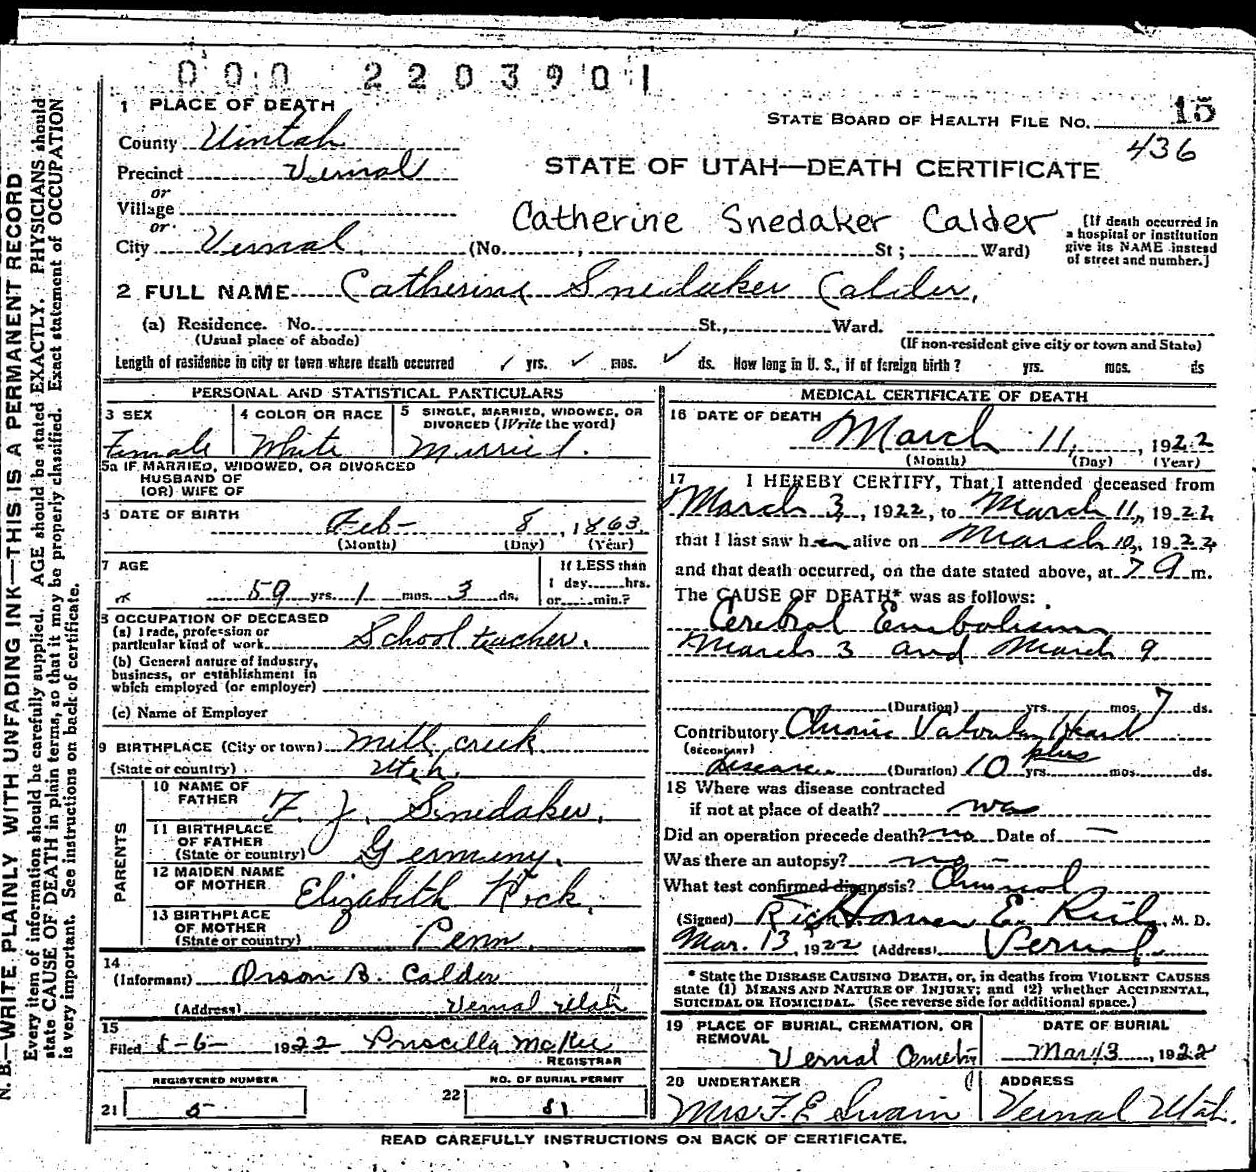 000 2203901
1 PLACE OF DEATH
STATE BOARD OF HEALTH FILE NO. 15
436
County Uintah
Precinct Vernal
STATE OF UTAH—DEATH CERTIFICATE
or
Village
or
City Vernal (No. , St; Ward)
Catherine Snedaker Calder
[If death occurred in
a hospital or institution
give its NAME instead
of street and number.]
2 FULL NAME Catherine Snedaker Calder,
(a) Residence. No. St., Ward.
(Usual place of abode) (If non-resident give city or town and State)
Length of residence in city or town where death occurred yrs. mos. ds. How long in U. S., if of foreign birth? yrs. mos. ds
PERSONAL AND STATISTICAL PARTICULARS
3 SEX 4 COLOR OR RACE 5 SINGLE, MARRIED, WIDOWED, OR
DIVORCED (Write the word)
Female White Married.
5a IF MARRIED, WIDOWED, OR DIVORCED
HUSBAND OF
(OR) WIFE OF
6 DATE OF BIRTH
Feb- 8, 1863
(Month) (Day) (Year)
7 AGE If LESS than
1 day, hrs.
or min.?
59 yrs. 1 mos. 3 ds.
8 OCCUPATION OF DECEASED
(a) Trade, profession or
particular kind of work School teacher.
(b) General nature of Industry,
business, or establishment in
which employed (or employer)
(c) Name of Employer
9 BIRTHPLACE (City or town) Mill creek
(State or country) Utah.
PARENTS
10 NAME OF
FATHER F. J. Snedaker.
11 BIRTHPLACE
OF FATHER
(State or country) Germany.
12 MAIDEN NAME
OF MOTHER Elizabeth
13 BIRTHPLACE
OF MOTHER
(State or country) Penn.
14
(Informant) Orson B. Calder
(Address) Vernal Utah
15
Filed 5-6- 1922 Priscilla McKee
REGISTRAR
REGISTERED NUMBER NO. OF BURIAL PERMIT
21 5 22 51
MEDICAL CERTIFICATE OF DEATH
16 DATE OF DEATH
March 11, 1922
(Month) (Day) (Year)
17 I HEREBY CERTIFY, That I attended deceased from
March 3, 1922, to March 11, 1922
that I last saw her alive on March 10, 1922
and that death occurred, on the date stated above, at 7 a m.
The CAUSE OF DEATH* was as follows:
Cerebral Embolism
March 3 and March 9
(Duration) yrs. mos. 7 ds.
Contributory Chronic Valvular Heart
(SECONDARY) disease (Duration) 10 plus yrs. mos. ds.
18 Where was disease contracted
if not at place of death? was
Did an operation precede death? no Date of —
Was there an autopsy? no -
What test confirmed diagnosis?
(Signed) M. D.
Mar. 13, 1922 (Address) Vernal
* State the DISEASE CAUSING DEATH, or, in deaths from VIOLENT CAUSES
state (1) MEANS AND NATURE OF INJURY; and (2) whether ACCIDENTAL,
SUICIDAL OR HOMICIDAL. (See reverse side for additional space.)
19 PLACE OF BURIAL, CREMATION, OR
REMOVAL DATE OF BURIAL
Vernal Cemetery Mar 13, 1922
20 UNDERTAKER ADDRESS
Mrs F. E Swain Vernal Utah.
READ CAREFULLY INSTRUCTIONS ON BACK OF CERTIFICATE.
N. B.—WRITE PLAINLY WITH UNFADING INK—THIS IS A PERMANENT RECORD
Every item of information should be carefully supplied. AGE should be stated EXACTLY. PHYSICIANS should
state CAUSE OF DEATH in plain terms, so that it may be properly classified. Exact statement of OCCUPATION
is very important. See instructions on back of certificate.